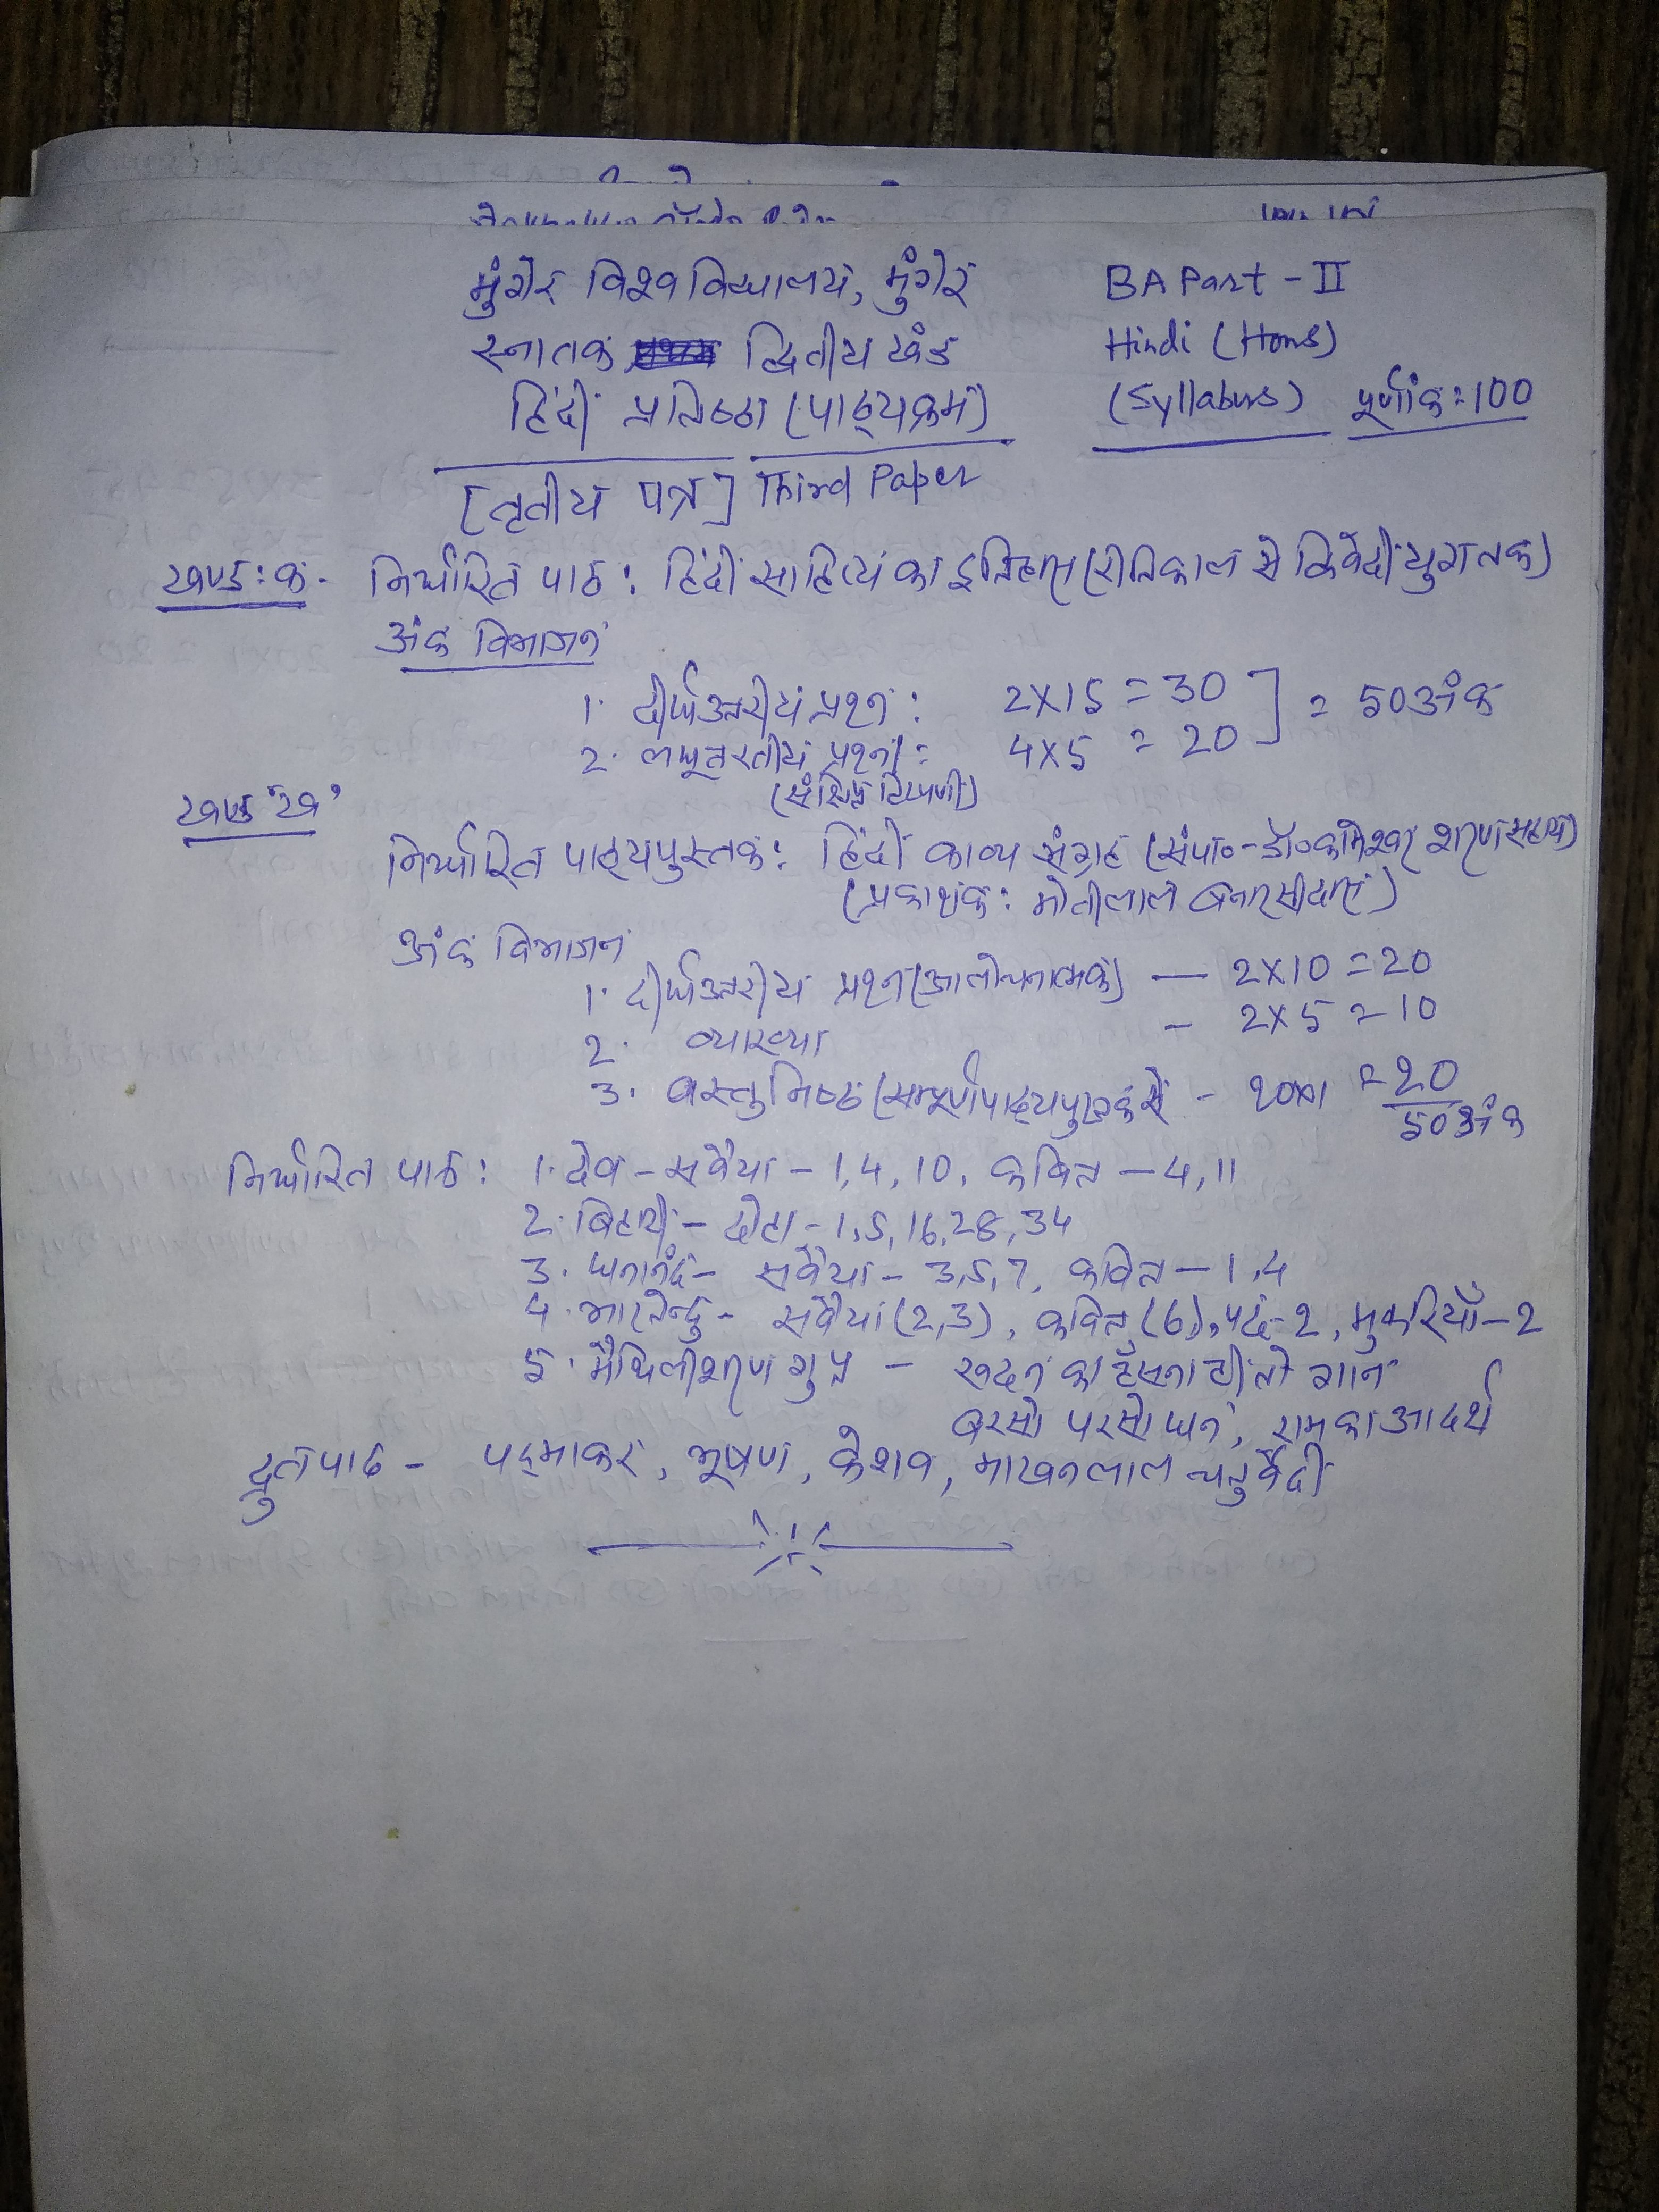 मुंगेर विश्वविद्यालय, मुंगेर BA Part - II
स्नातक द्वितीय खंड Hindi (Hons)
हिंदी प्रतिष्ठा (पाठ्यक्रम) (Syllabus) पूर्णांक = 100
[तृतीय पत्र] Third Paper
खण्ड : क - निर्धारित पाठ : हिंदी साहित्य का इतिहास (रीतिकाल से द्विवेदी युग तक)
अंक विभाजन
1. दीर्घउत्तरीय प्रश्न : 2X15 = 30 ] = 50 अंक
2. लघूत्तरतीय प्रश्न : 4X5 = 20
(संक्षिप्त टिप्पणी)
खण्ड 'ख'
निर्धारित पाठ्यपुस्तक : हिंदी काव्य संग्रह (संपा०- डॉ० कामेश्वर शरण सहाय)
(प्रकाशक : मोतीलाल बनारसीदास)
अंक विभाजन
1. दीर्घउत्तरीय प्रश्न (आलोचनात्मक) — 2X10 = 20
2. व्याख्या - 2X5 = 10
3. वस्तुनिष्ठ (सम्पूर्ण पाठ्यपुस्तक से - 20X1 = 20
50 अंक
निर्धारित पाठ : 1. देव - सवैया - 1,4,10, कवित्त - 4,11
2. बिहारी - दोहा - 1,5,16,28,34
3. घनानंद - सवैया - 3,5,7, कवित्त - 1,4
4. भारतेन्दु - सवैया (2,3), कवित्त (6), पद - 2, मुकरियाँ - 2
5. मैथिलीशरण गुप्त - रुदन का हँसना ही तो गान
बरसो परसो घन, राम का आदर्श
द्रुतपाठ - पद्माकर, भूषण, केशव, माखनलाल चतुर्वेदी